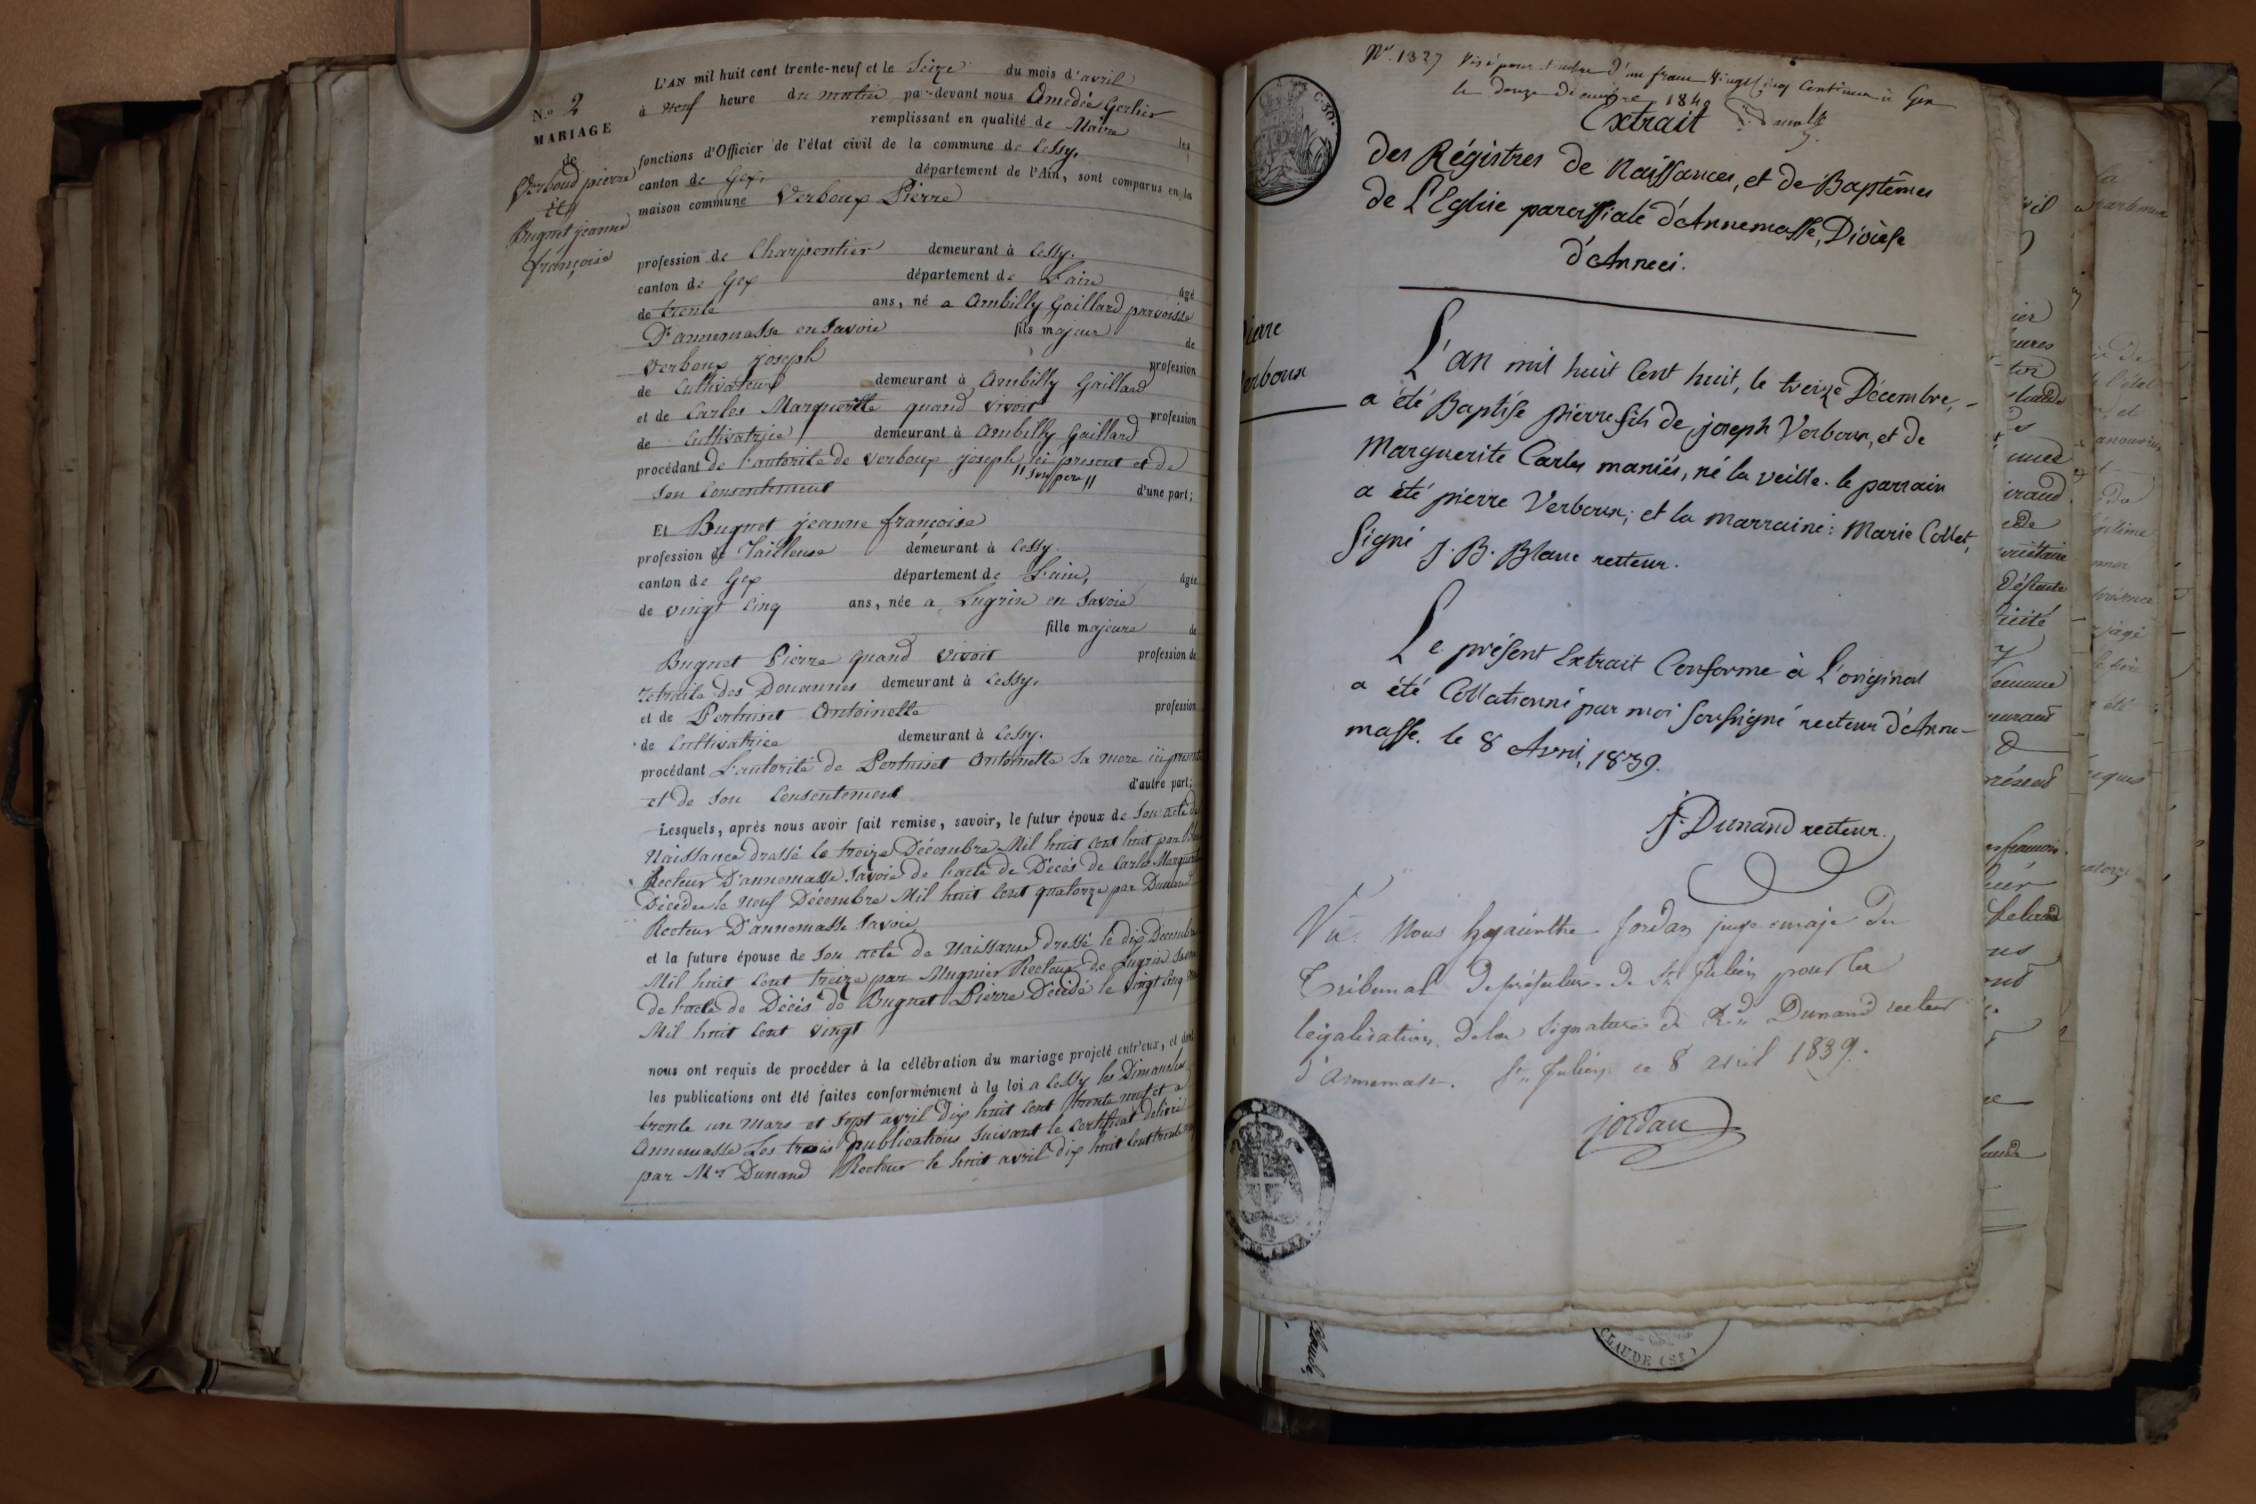 N.o 2
MARIAGE
de
Verboud pierre
et
Bugnet jeanne
françoise
L'AN mil huit cent trente-neuf et le Seize du mois d'avril
à neuf heure du matin par-devant nous Amédée Gerlier
remplissant en qualité de Maire les
fonctions d'Officier de l'état civil de la commune de Cessy,
canton de Gex, département de l'Ain, sont comparus en la
maison commune Verboux Pierre
profession de Charpentier demeurant à Cessy.
canton de Gex département de L'ain âgé
de trente ans, né a Ambilly Gaillard parroisse
D'annemasse en Savoie fils majeur de
Verboux Joseph profession
de Cultivateur demeurant à Ambilly Gaillard
et de Carles Margueritte quand vivoit profession
de Cultivatrice demeurant à Ambilly Gaillard
procédant de l'autorité de Verboux joseph ici présent et de
" Son pere "
Son Consentement d'une part;
Et Bugnet jeanne françoise
profession de Tailleuse demeurant à Cessy.
canton de Gex département de L'ain, âgée
de vingt Cinq ans, née a Lugrin en Savoie
fille majeure de
Bugnet Pierre quand vivoit profession de
retraite des Douannes demeurant à Cessy.
et de Pertuiset Antoinette profession
de Cultivatrice demeurant à Cessy.
procédant L'autorité de Pertuiset Antoinette Sa mere ici présente
et de Son Consentement d'autre part;
Lesquels, après nous avoir fait remise, savoir, le futur époux de Son acte de
Naissance dressé le treize Décembre Mil huit Cent huit par
Recteur D'annemasse Savoie de l'acte de Décès de Carles Marguerite
Décédée le neuf Décembre Mil huit Cent quatorze par Dunand
Recteur D'annemasse Savoie
et la future épouse de Son acte de Naissance dressé le dix Décembre
Mil huit Cent treize par Mugnier Recteur de Lugrin Savoie
de l'acte de Décès de Bugnet Pierre Décédé le vingt Cinq
Mil huit Cent vingt
nous ont requis de procéder à la célébration du mariage projeté entr'eux, et dont
les publications ont été faites conformément à la loi a Cessy les Dimanches
trente un Mars et Sept avril dix huit Cent trente neuf et a
Annemasse Les trois publications Suivant le Certificat délivré
par Mr Dunand Recteur le huit avril dix huit Cent trente neuf
No. 1327 Visé pour timbre d'un franc Vingt Cinq Centimes à Gex
le douze
Extrait
des Régistres de Naissances, et de Baptêmes
de L'Eglise paroissiale d'Annemasse, Diocèse
d'Anneci.
Pierre
Verboux
L'an mil huit Cent huit, le treize Décembre,
a été Baptise pierre fils de joseph Verboux, et de
Marguerite Carles mariés, né la veille. le parrain
a été pierre Verboux; et la marraine: Marie Collet,
Signé J. B. Blanc recteur.
Le présent Extrait Conforme à L'original
a été Collationné par moi Soussigné recteur d'Anne-
masse. le 8 Avril, 1839.
J. Dunand recteur.
Vu Nous hyacinthe Jordan juge maje du
Tribunal de préfecture de St Julien pour la
légalisation de la Signature de Rd Dunand recteur
d'Annemasse. St Julien ce 8 avril 1839.
jordan
CLAUDE (St)